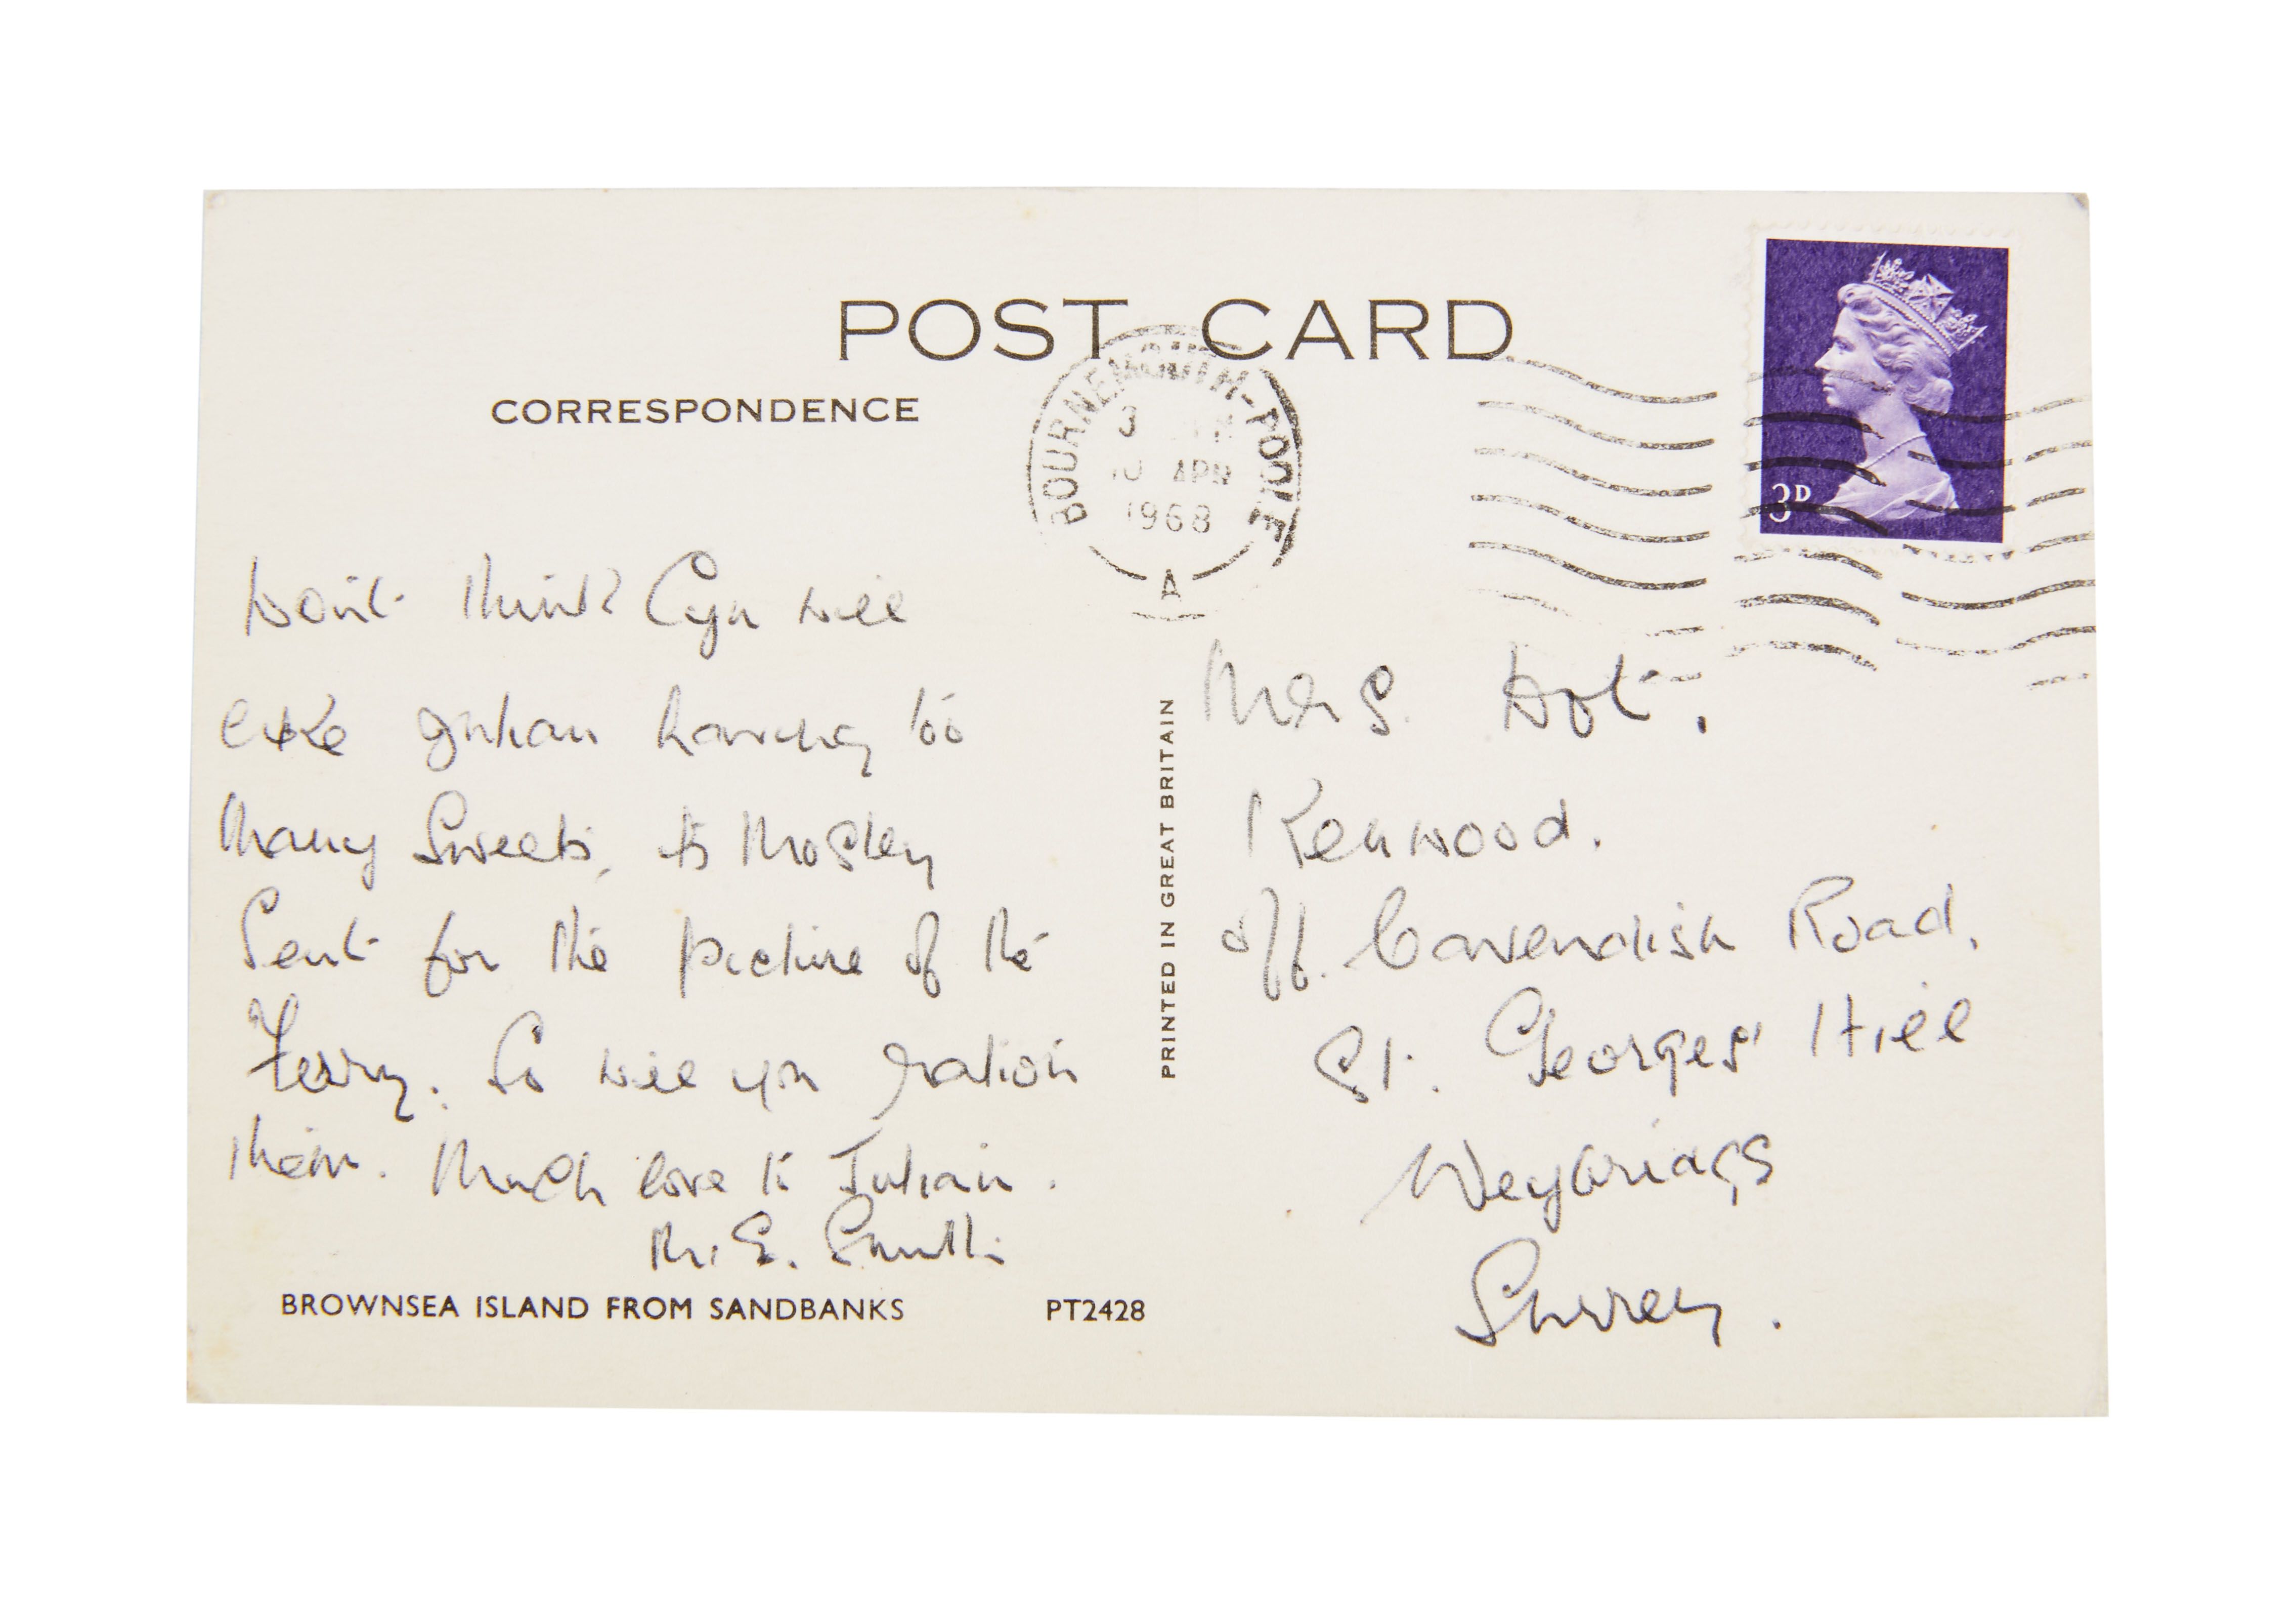 POST CARD
CORRESPONDENCE
BOURNEMOUTH-POOLE
3
10 APR
1968
A
3D
Don't think Cyn will
like Julian having too
many sweets, its mostly
Sent for the picture of the
Ferry. So will you ration
them. Much love to Julian.
M.E. Smith
BROWNSEA ISLAND FROM SANDBANKS
PT2428
PRINTED IN GREAT BRITAIN
Mrs.
Kenwood.
off. Cavendish Road,
St. Georges' Hill
Weybridge
Surrey.